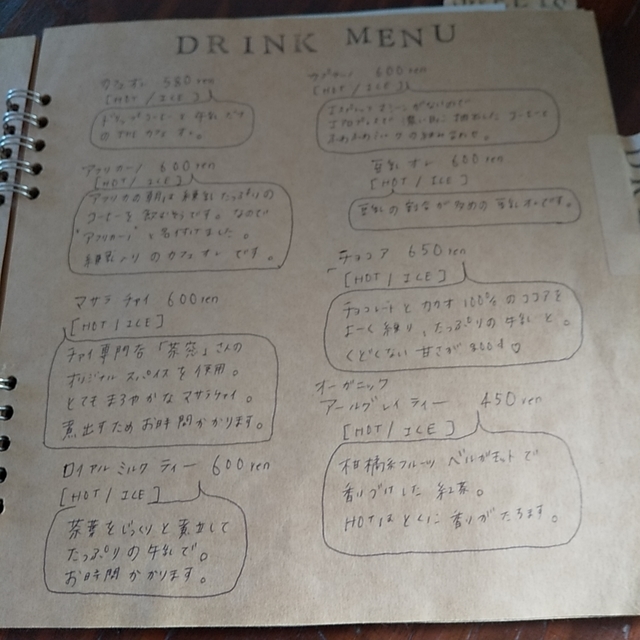 DRINK MENU
カフェオレ 580 yen
[HOT / ICE]
アフリカーノ 600 yen
[HOT / ICE]
コーヒーを
"アフリカーノ" と名付けました。
練乳入りのカフェオレです。
マサラ チャイ 600 yen
[HOT / ICE]
チャイ専門店「茶窓」さんの
オリジナル スパイスを使用。
とてもまろやかなマサラチャイ。
煮出すためお時間かかります。
ロイヤル ミルク ティー 600 yen
[HOT / ICE]
茶葉をじっくりと煮出して
たっぷりの牛乳で。
お時間かかります。
600 yen
[HOT / ICE]
豆乳オレ 600 yen
[HOT / ICE]
豆乳の割合が多めの豆乳オレです。
チョコア 650 yen
[HOT / ICE]
チョコレートとカカオ100%のココアを
よーく練り、たっぷりの牛乳と。
くどくない甘さがgood♡
オーガニック
アールグレイティー 450 yen
[HOT / ICE]
柑橘系フルーツ ベルガモットで
香りづけした紅茶。
HOTはとくに香りがたちます。